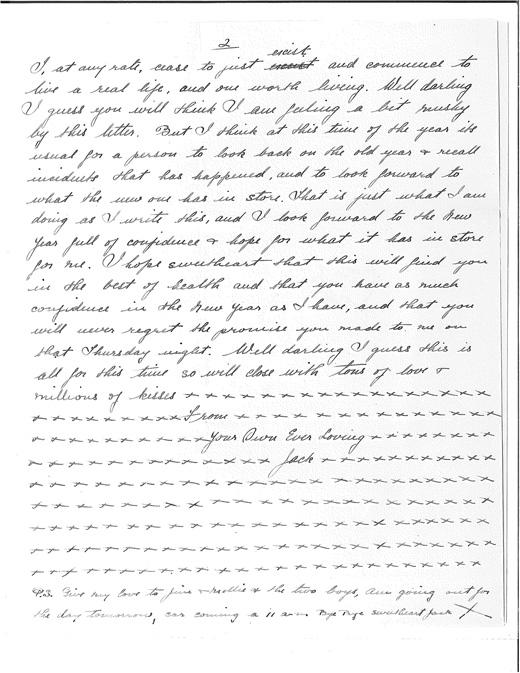 2
exist
I, at any rate, cease to just and commence to
live a real life, and one worth living. Well darling
I guess you will think I am feeling a bit mushy
by this letter. But I think at this time of the year its
usual for a person to look back on the old year & recall
incidents that has happened, and to look forward to
what the new one has in store. That is just what I am
doing as I write this, and I look forward to the New
Year full of confidence & hope for what it has in store
for me. I hope sweetheart that this will find you
in the best of health and that you have as much
confidence in the New Year as I have, and that you
will never regret the promise you made to me on
that Thursday night. Well darling I guess this is
all for this time so will close with tons of love &
millions of kisses x x x x x x x x x x x x x x x x x
x x x x x x x x x From x x x x x x x x x x x x x x
x x x x x x x x x x Your Own Ever Loving x x x x x x x
x x x x x x x x x x x x x x Jack x x x x x x x x x x
x x x x x x x x x x x x x x x x x x x x x x x x x
x x x x x x x x x x x x x x x x x x x x x x x x
x x x x x x x x x x x x x x x x x x x x x x x x x
x x x x x x x x x x x x x x x x x x x x x x x x x
x x x x x x x x x x x x x x x x x x x x x x x x
P.S. Give my love to & Mollie & the two boys, am going out for
the day tomorrow, car coming a 11 a.m. Bye Bye sweetheart Jack X